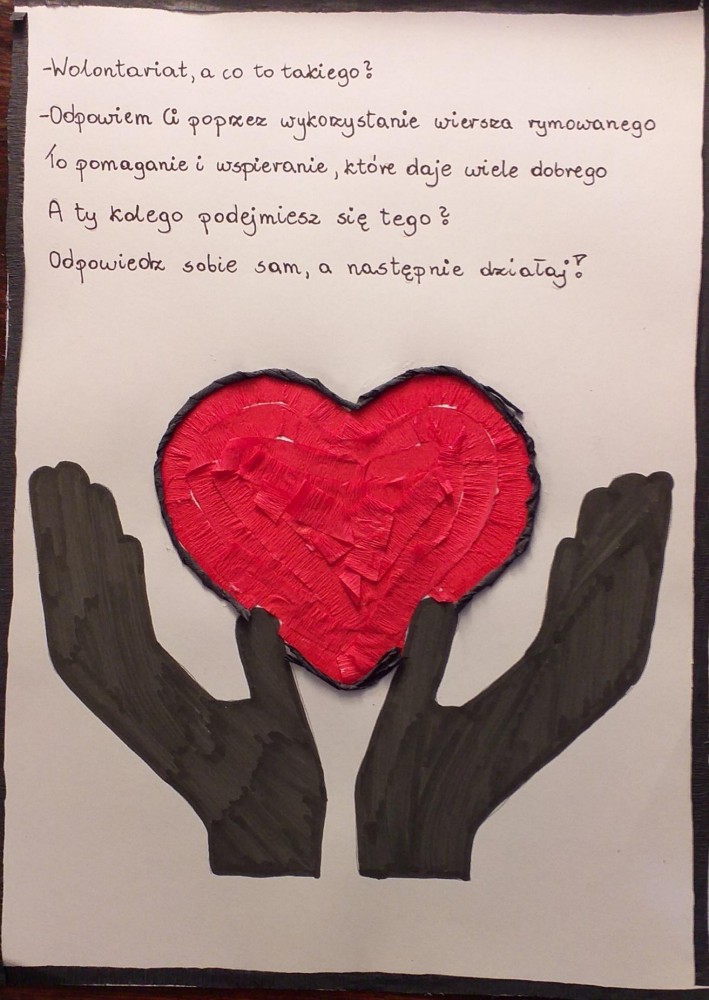 -Wolontariat, a co to takiego?
-Odpowiem Ci poprzez wykorzystanie wiersza rymowanego
To pomaganie i wspieranie, które daje wiele dobrego
A ty kolego podejmiesz się tego?
Odpowiedz sobie sam, a następnie działaj!